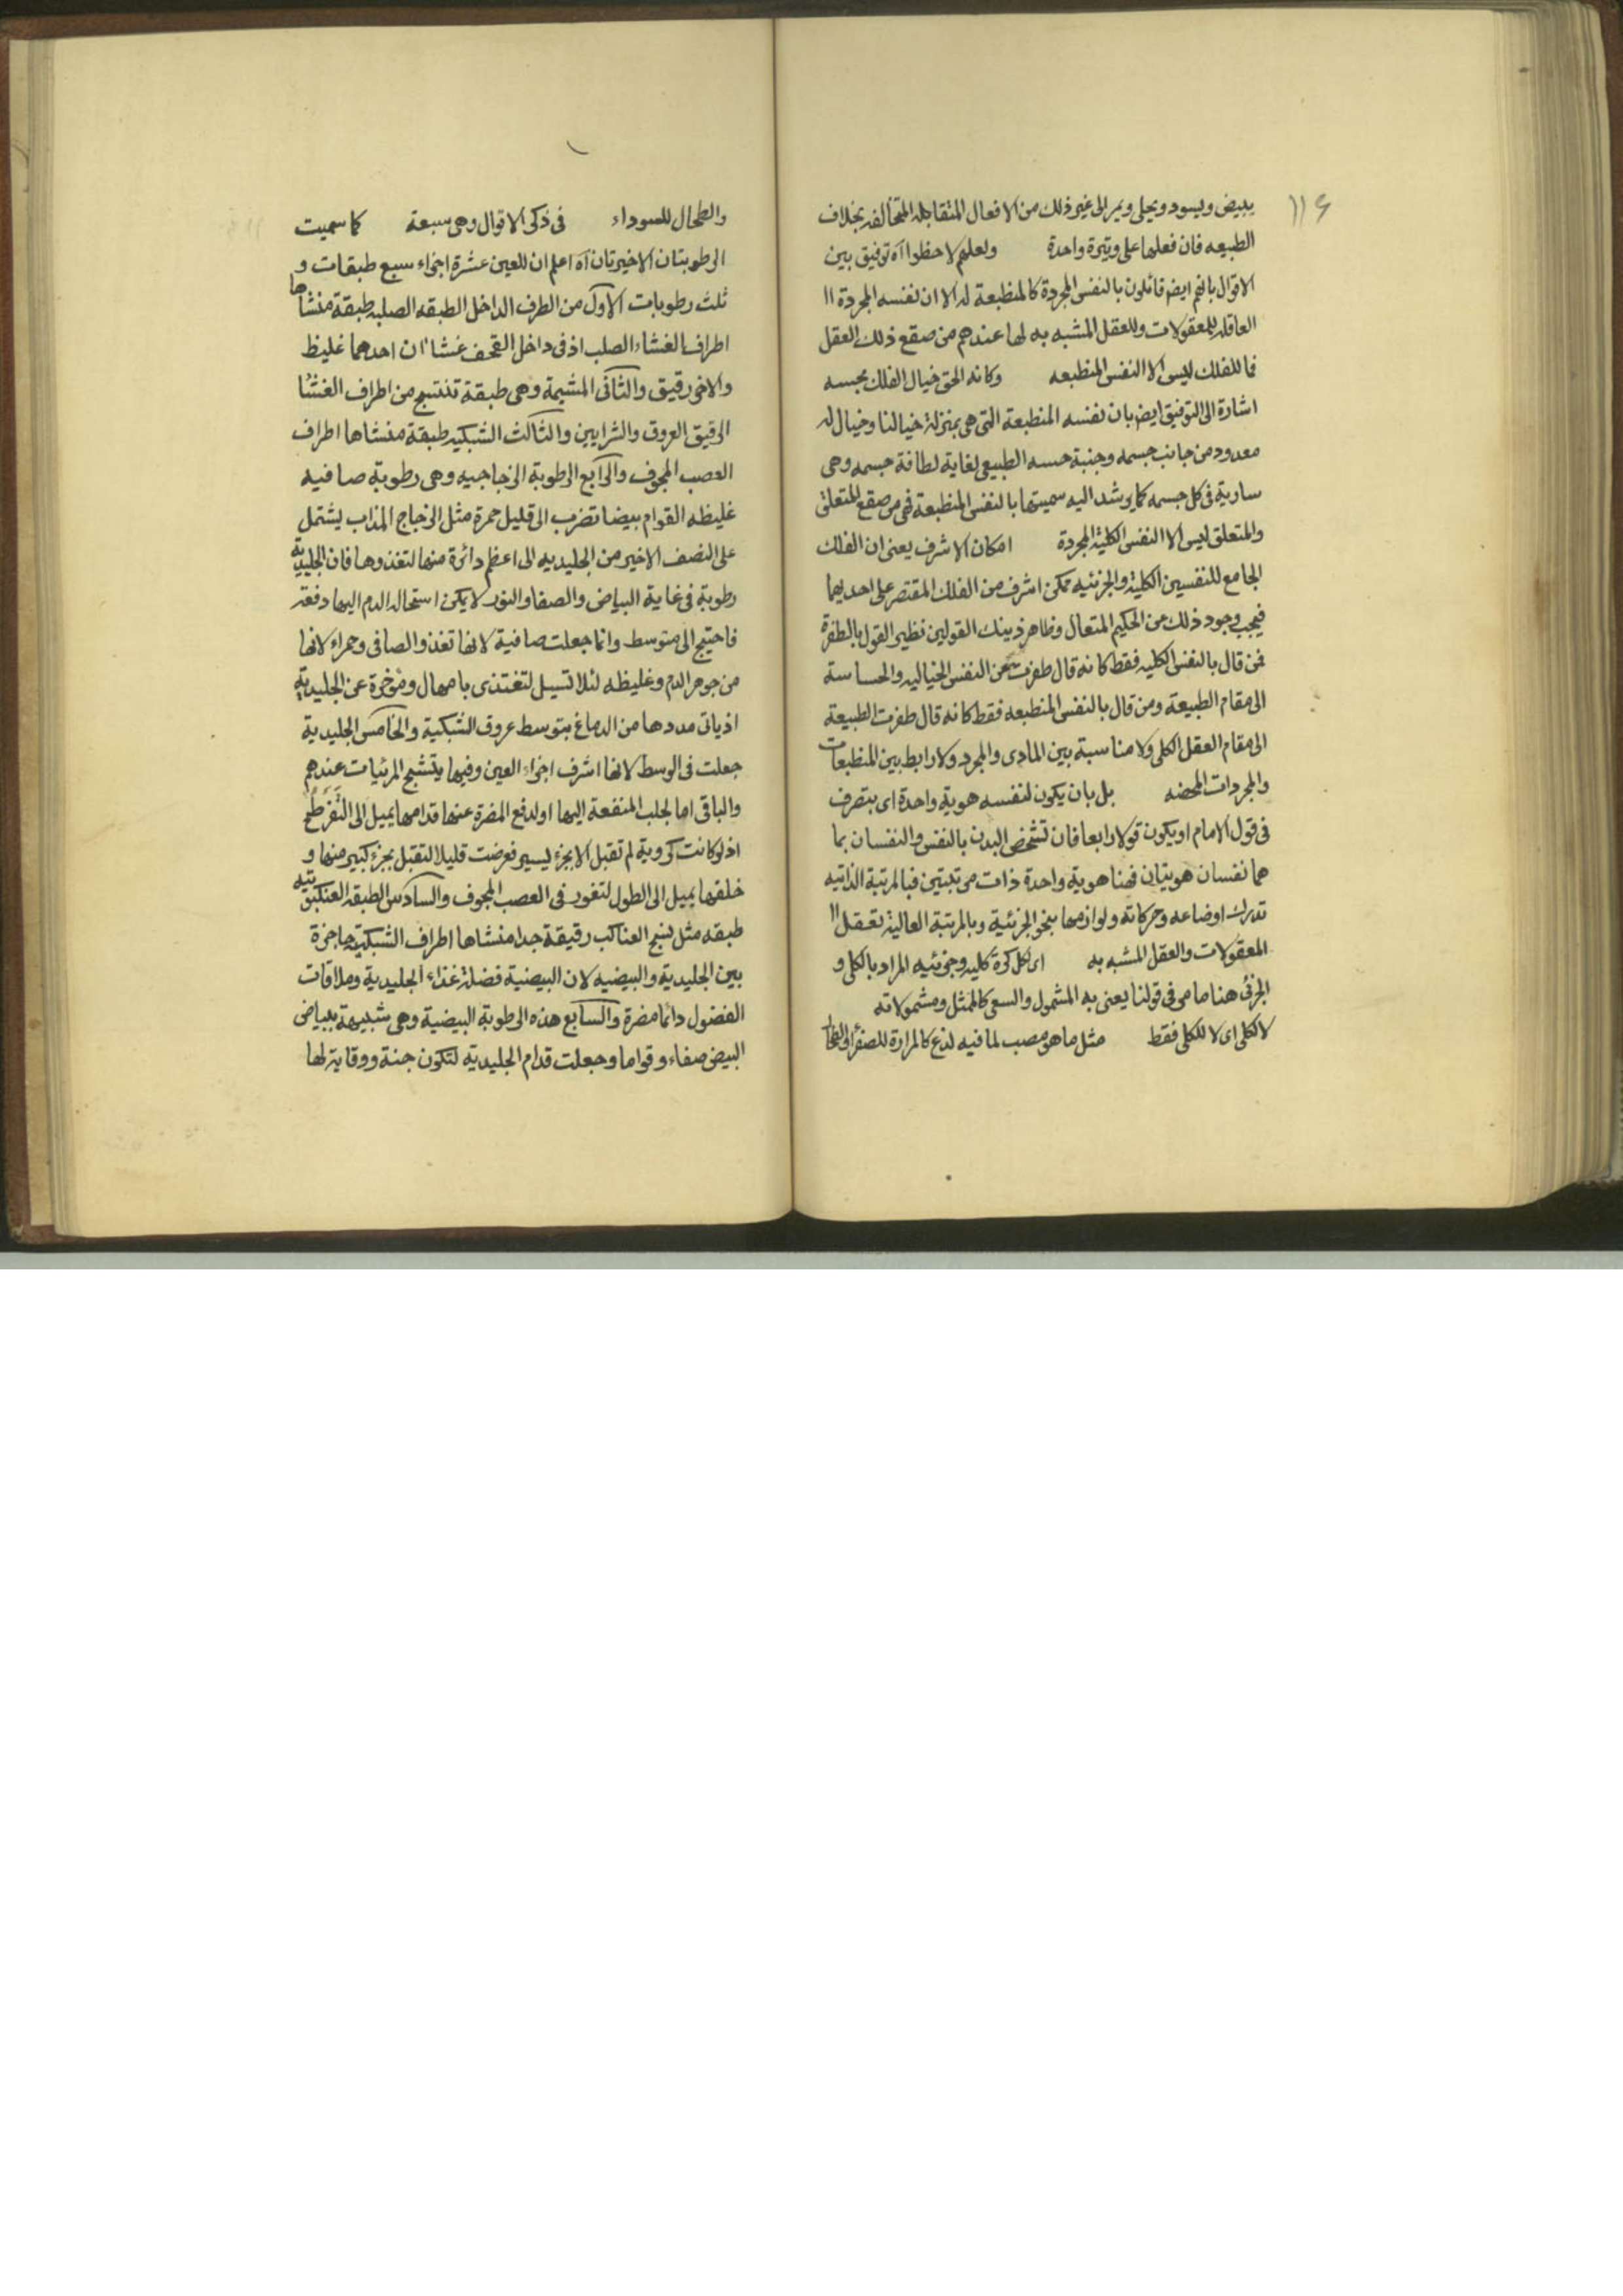 ١١٤
يبيض ويسود ويحلى ويمر الى غير ذلك من الافعال المتقابله المتخالفه بخلاف
الطبيعه فان فعلها على وتيرة واحدة ولعلهم لاحظوا اه توفيق بين
الاقوال بانهم ايضم قائلون بالنفس المجردة كالمنطبعة له الا ان نفسه المجردة ال
العاقله للمعقولات وللعقل المشبه به لها عندهم من صقع ذلك العقل
فما للفلك ليس الا النفس المنطبعه وكانه الحق خيال الفلك بحسبه
اشارة الى التوفيق ايضم بان نفسه المنطبعة التى هى بمنزلة خيالنا وخيال له
معدود من جانب جسمه وجنبة حسه الطبيعى لغاية لطافة جسمه وهى
سارية فى كل جسمه كما يرشد اليه سميتها بالنفس المنطبعة فهى من صقع المتعلق
والمتعلق ليس الا النفس الكلية المجردة امكان الاشرف يعنى ان الفلك
الجامع للنفسين الكلية والجزئيه ممكن اشرف من الفلك المقتصر على احديهما
فيجب وجود ذلك من الحكيم المتعال وظاهر ذينك القولين نظير القول بالطفرة
فمن قال بالنفس الكليه فقط كانه قال طفرت عن النفس الخياليه والحساسة
الى مقام الطبيعة ومن قال بالنفس المنطبعه فقط كانه قال طفرت الطبيعة
الى مقام العقل الكلى ولا مناسبة بين المادى والمجرد ولا رابط بين المنطبعات
والمجردات المحضه بل بان يكون لنفسه هوية واحدة اى بتصرف
فى قول الامام او يكون قولا رابعا فان تشخص البدن بالنفس والنفسان بما
هما نفسان هويتان فهنا هوية واحدة ذات مرتبتين فبالمرتبة الذاتيه
تدرك اوضاعه وحركاته ولوازمها بنحو الجزئية وبالمرتبة العالية تعقل ال
المعقولات والعقل المشبه به اى لكل كرة كليه وجزئيه المراد بالكلى و
الجزئى هنا ما مر فى قولنا يعنى به المشمول والسعى كالممثل ومشمولاته
لا لكلى اى لا للكلى فقط مثل ما هو مصب لما فيه لذع كالمرارة للصفراء
والطحال للسوداء فى ذكر الاقوال وهى سبعة كما سميت
الرطوبتان الاخيرتان اه اعلم ان للعين عشرة اجزاء سبع طبقات و
ثلث رطوبات الاول من الطرف الداخل الطبقه الصلبه طبقة منشاها
اطراف الغشاء الصلب اذ فى داخل القحف غشاان احدهما غليظ
والاخر رقيق والثانى المشيمة وهى طبقة تنتسج من اطراف الغشا
الرقيق العروق والشرايين والثالث الشبكيه طبقة منشاها اطراف
العصب المجوف والرابع الرطوبة الزجاجيه وهى رطوبة صافيه
غليظه القوام بيضا تضرب الى قليل حمرة مثل الزجاج المذاب يشتمل
على النصف الاخير من الجليديه الى اعظم دائرة منها لتغذوها فان الجليدية
رطوبة فى غاية البياض والصفا والنور لا يمكن استحاله الدم اليها دفعة
فاحتيج الى متوسط وانما جعلت صافية لانها تغذو الصافى وحمراء لانها
من جوهر الدم وغليظه لئلا تسيل لتغتذى بامهال ومؤخرة عن الجليدية
اذ ياتى مددها من الدماغ بتوسط عروق الشبكية والخامس الجليدية
جعلت فى الوسط لانها اشرف اجزاء العين وفيها يتشبح المرئيات عندهم
والباقى اما لجلب المنفعة اليها او لدفع المضرة عنها قدامها يميل الى التفرطح
اذ لو كانت كروية لم تقبل الا بجزء يسير فعرضت قليلا لتقبل بجزء كبير منها و
خلفها يميل الى الطول لتغور فى العصب المجوف والسادس الطبقه العنكبوتيه
طبقه مثل نسج العناكب رقيقة جدا منشاها اطراف الشبكية حاجزة
بين الجليدية والبيضيه لان البيضية فضلة غذاء الجليدية وملاقات
الفضول دائما مضرة والسابع هذه الرطوبة البيضية وهى شبيهة ببياض
البيض صفاء وقواما وجعلت قدام الجليدية لتكون جنة ووقاية لها